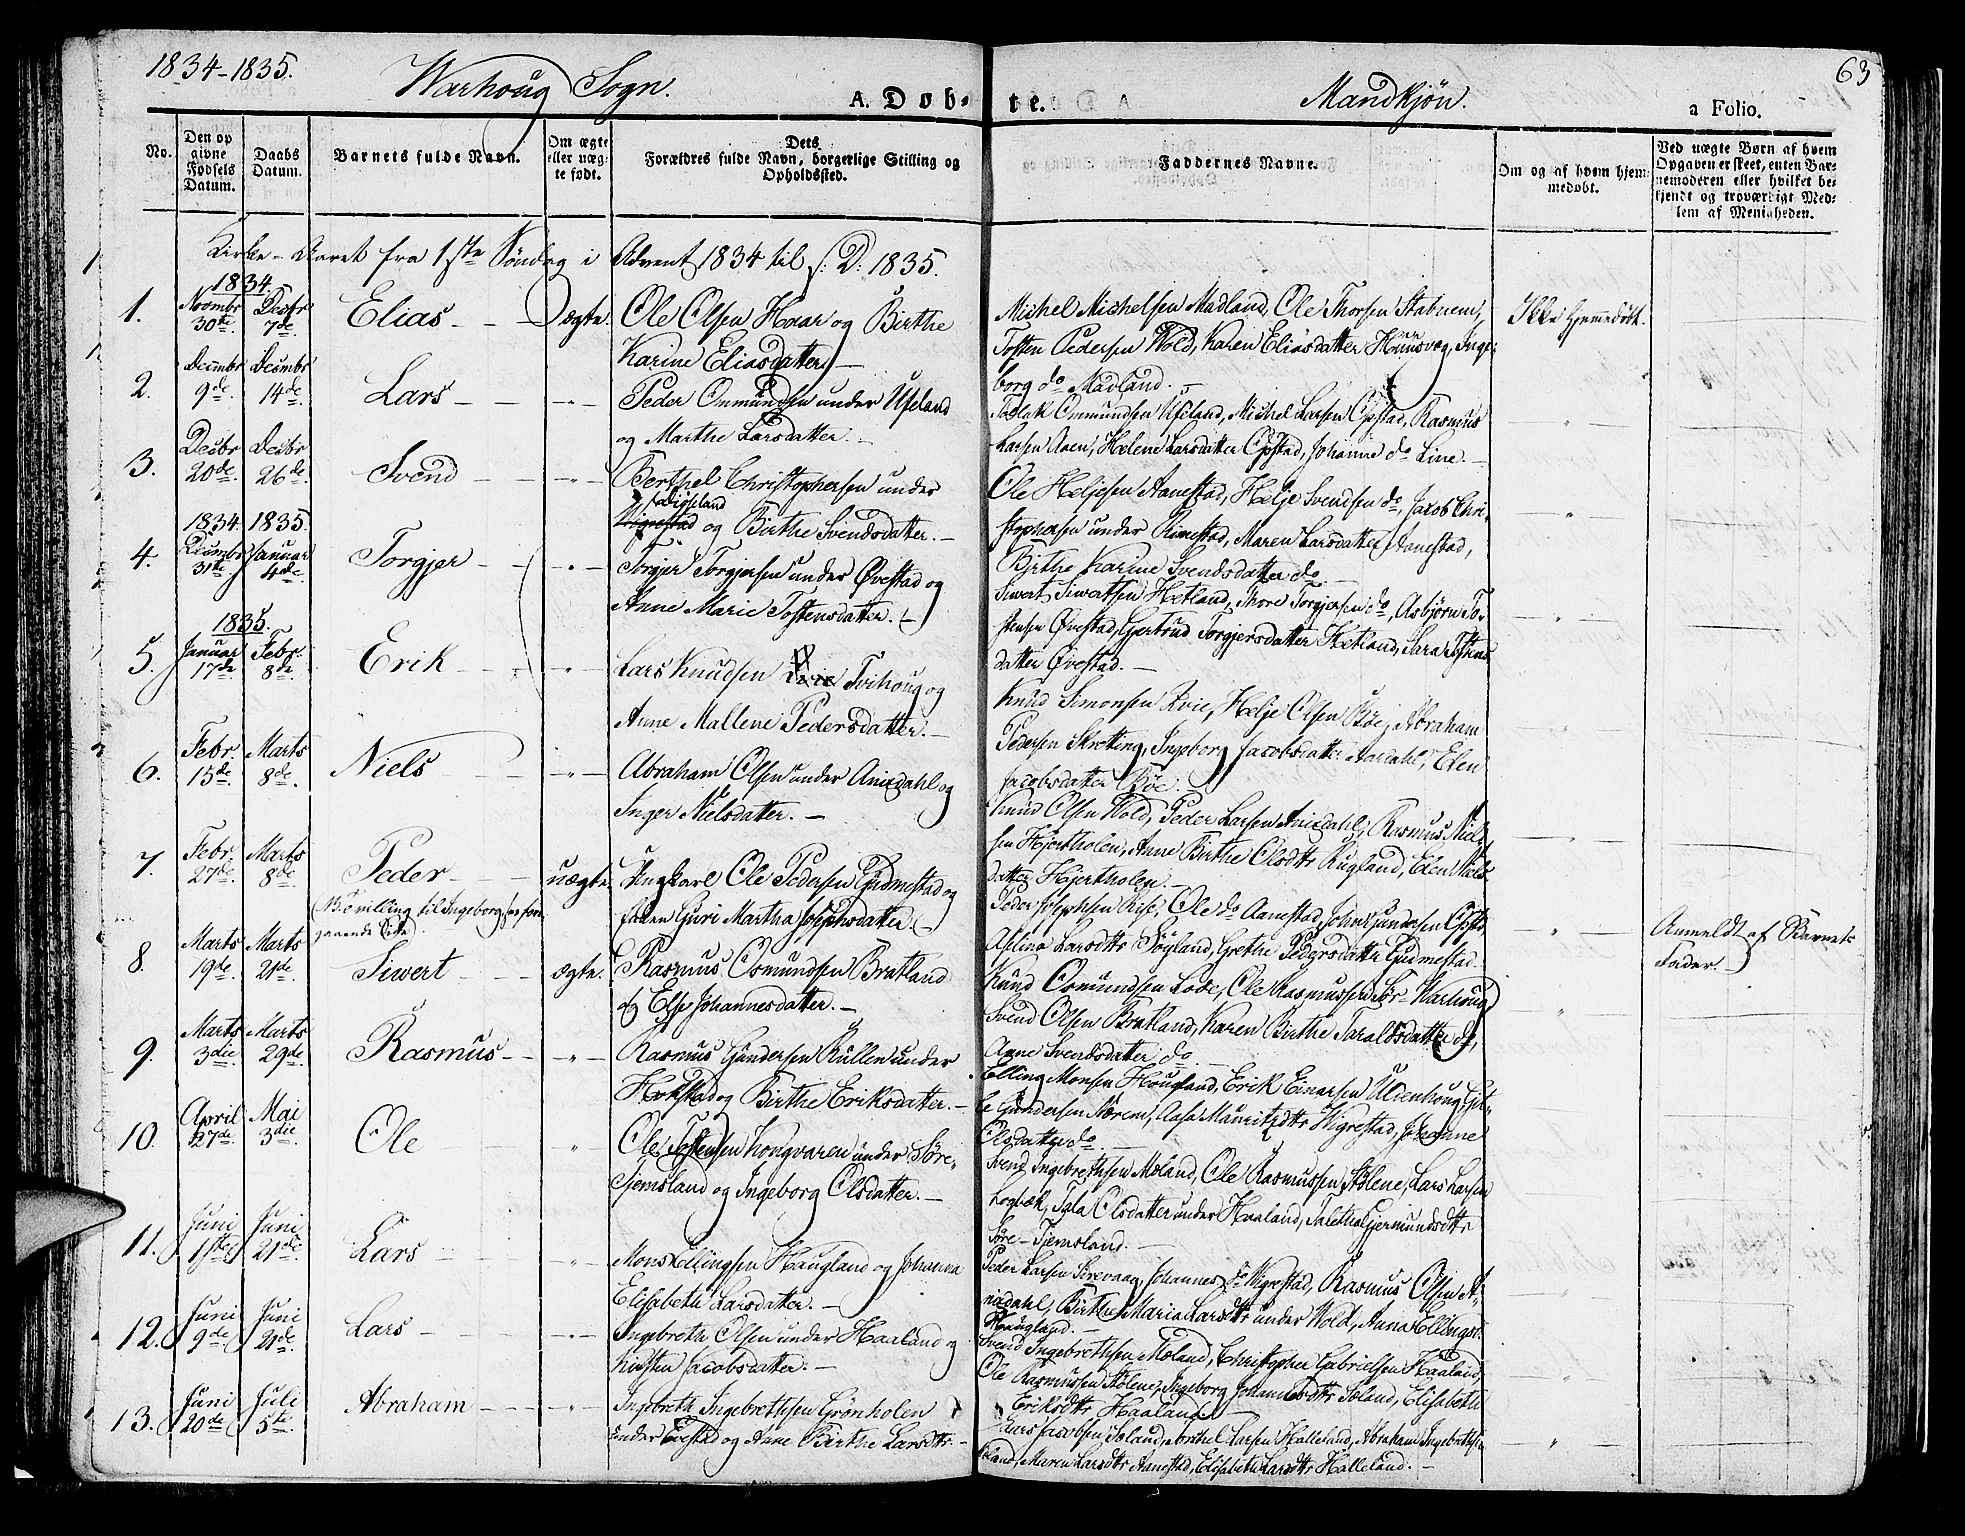 1834-1835.
Warhoug Sogn.
A. Døb-
te.
Mandkjøn.
63
a Folio.
No.
Den op
givne
Fødsels
Datum.
Daabs
Datum.
Barnets fulde Navn.
Om ægte
eller uæg-
te født.
Dets
Forældres fulde Navn, borgerlige Stilling og
Opholdssted.
Faddernes Navne.
Om og af hvem hjem-
medøbt.
Ved uægte Børn af hvem
Opgaven er skeet, enten Bar-
nemoderen eller hvilket be-
kjendt og troværdigt Med-
lem af Menigheden.
Kirke-Aaret fra 1ste Søndag i Advent 1834 til s: D: 1835.
1834
1. Novmbr 30te Desbr 7de Elias ægte.
Ole Olsen Haar og Birthe
Karine Eliasdatter.
Michel Michelsen Madland, Ole Thorsen Stabnem,
Tosten Pedersen Wold, Karen Eliasdatter Huusvæg, Inge-
borg do Madland.
Ikke Hjemmedøbt.
2. Decmbr 9de Decmbr 14de Lars -"-
Peder Ommundsen under Ueland
og Marthe Larsdatter.
Ommundsen Ueland, Michel Larsen Opstad, Rasmus
Larsen Aaen, Helene Larsdatter Opstad, Johanne do Line.
3. Desbr 20de Desbr 26de Svend -"-
Berthel Christophersen under
og Birthe Svendsdatter.
Ole Heljesen Aanestad, Helje Svendsen do, Jacob Chri-
stophersen under Rimestad, Maren Larsdatter Aanestad,
Birthe Karine Svendsdatter do
4. 1834 Decmbr 31te 1835. Januar 4de Torgjer -"-
Torgjer Torgjersen under Øvestad og
Anne Marie Tostensdatter.
Siwert Siwertsen Hetland, Thore Torgjersen do, Asbjørn To-
stensen Øvestad, Gjertrud Torgjersdatter Hetland, Sara Tostens
datter Øvestad.
1835.
5. Januar 17de Febr. 8de Erik -"-
Lars Knudsen Tvihoug og
Anne Mallene Pedersdatter.
Knud Simonsen Kvie, Helje Olsen Bøe, Abraham
Pedersen Skretting, Ingeborg Jacobsdatter Aardahl, Elen
Jacobsdatter Bøe.
6. Febr. 15de Marts 8de Niels -"-
Abraham Olsen under Anisdahl og
Inger Nielsdatter.
Knud Olsen Wold, Peder Larsen Anisdahl, Rasmus Niel-
sen Hjertholen, Anne Birthe Olsdtr Rugland, Elen Niels
datter Hjertholen.
7. Febr. 27de Marts 8de Peder uægte.
Ungkarl Ole Pedersen Gudmestad og
Guri Martha Josephsdatter
(NB. Tvilling til Ingeborg paa fore
gaaende Side).
Peder Josephsen Rise, Ole do Aanestad, John Gundersen Opstad,
Aseline Larsdtr Søyland, Grethe Pedersdatter Gudmestad.
Anmeldt af Barnets
Fader.
8. Marts 19de Marts 21de Siwert ægte.
Rasmus Osmundsen Bratland
og Else Johannesdatter.
Knud Osmundsen Lode, Ole Rasmussen Sør-Warhoug
Svend Olsen Bratland, Karen Birthe Taraldsdatter do,
Anne Svendsdatter do
9. Marts 3die Marts 29de Rasmus -"-
Rasmus Gundersen Kullen under
og Birthe Eriksdatter.
Elling Monsen Hougland, Erik Einarsen Uldenhoug, Git-
le Gundersen Nærem, Aasa Mauritzdtr Wigrestad, Johanne
Olsdatter do
10. April 27de Mai 3die Ole -"-
Ole Tostensen Kongvaren under Søre-
Tjemsland og Ingeborg Olsdatter.
Svend Ingebrethsen Moland, Ole Rasmussen Stølene, Lars Larsen
Logbæk, Tala Olsdatter under Haaland, Taletha Gjermundsdtr
Søre-Tjemsland.
11. Juni 1ste Juni 21de Lars -"-
Mons Ellingsen Haugland og Johanna
Elisabeth Larsdatter.
Peder Larsen Sirevaag, Johannes do Wigrestad, Rasmus Olsen A-
nisdahl, Birthe Maria Larsdtr under Wold, Anna Ellingsd.
Haugland.
12. Juni 9de Juni 21de Lars -"-
Ingebreth Olsen under Haaland og
Kirsten Jacobsdatter.
Svend Ingebrethsen Moland, Christopher Gabrielsen Haaland,
Ole Rasmussen Stølene, Ingeborg Johannesdtr Soland, Elisabeth
Eriksdtr Haaland
13. Juni 20de Juli 5te Abraham -"-
Ingebreth Ingebrethsen Grønholen
under Evestad og Anne Birthe Larsdtr
Lars Jacobsen Soland, Michel Larsen Halleland, Abraham Ingebrethsen
Maren Larsdtr Aanestad, Elisabeth Larsdtr Halleland.